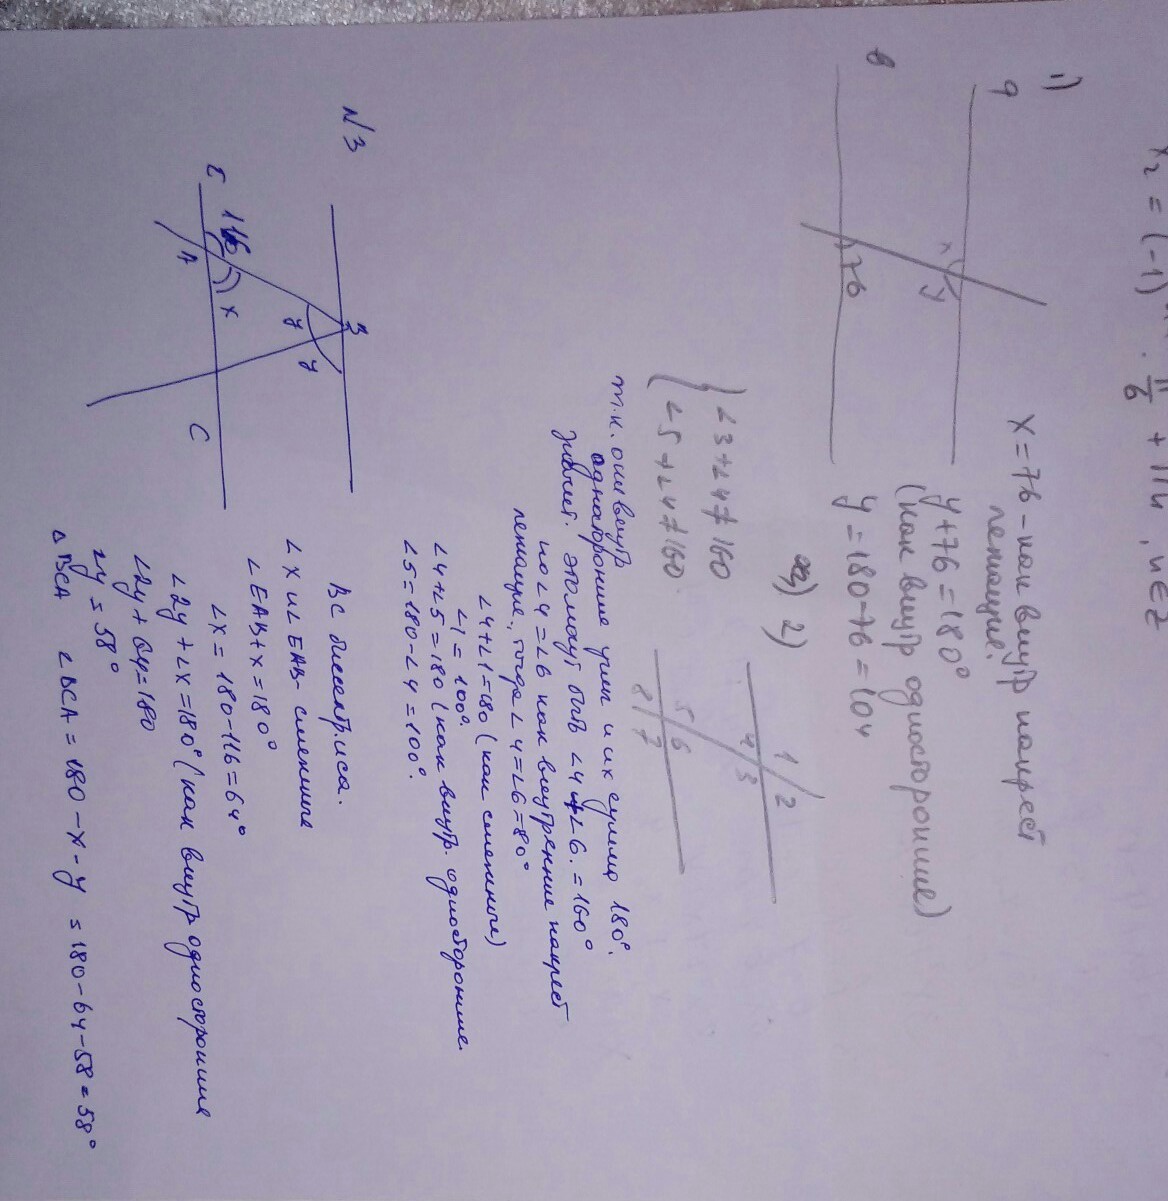 x₂ = (-1) · π/6 + πn, n∈Z
1)
a
в
x
y
76
x = 76 - как внутр накрест
лежащие.
y + 76 = 180°
(как внутр односторонние)
y = 180 - 76 = 104
2)
1 2
4 3
5 6
8 7
∠3 + ∠4 ≠ 160
∠5 + ∠4 ≠ 160
т.к. они внутр
односторонние углы и их сумма 180°.
значит. это могут быть ∠4 + ∠6. = 160°
но ∠4 = ∠6 как внутренние накрест
лежащие, тогда ∠4 = ∠6 = 80°
∠4 + ∠1 = 180 (как смежные)
∠1 = 100°
∠4 + ∠5 = 180 (как внутр. односторонние
∠5 = 180 - ∠4 = 100°.
N3
E
116
A
x
B
y
y
C
BC биссектриса.
∠x и ∠EAB - смежные
∠EAB + x = 180°
∠x = 180 - 116 = 64°
∠2y + ∠x = 180° (как внутр односторонние
∠2y + 64 = 180
∠y = 58°
△BCA ∠BCA = 180 - x - y = 180 - 64 - 58 = 58°